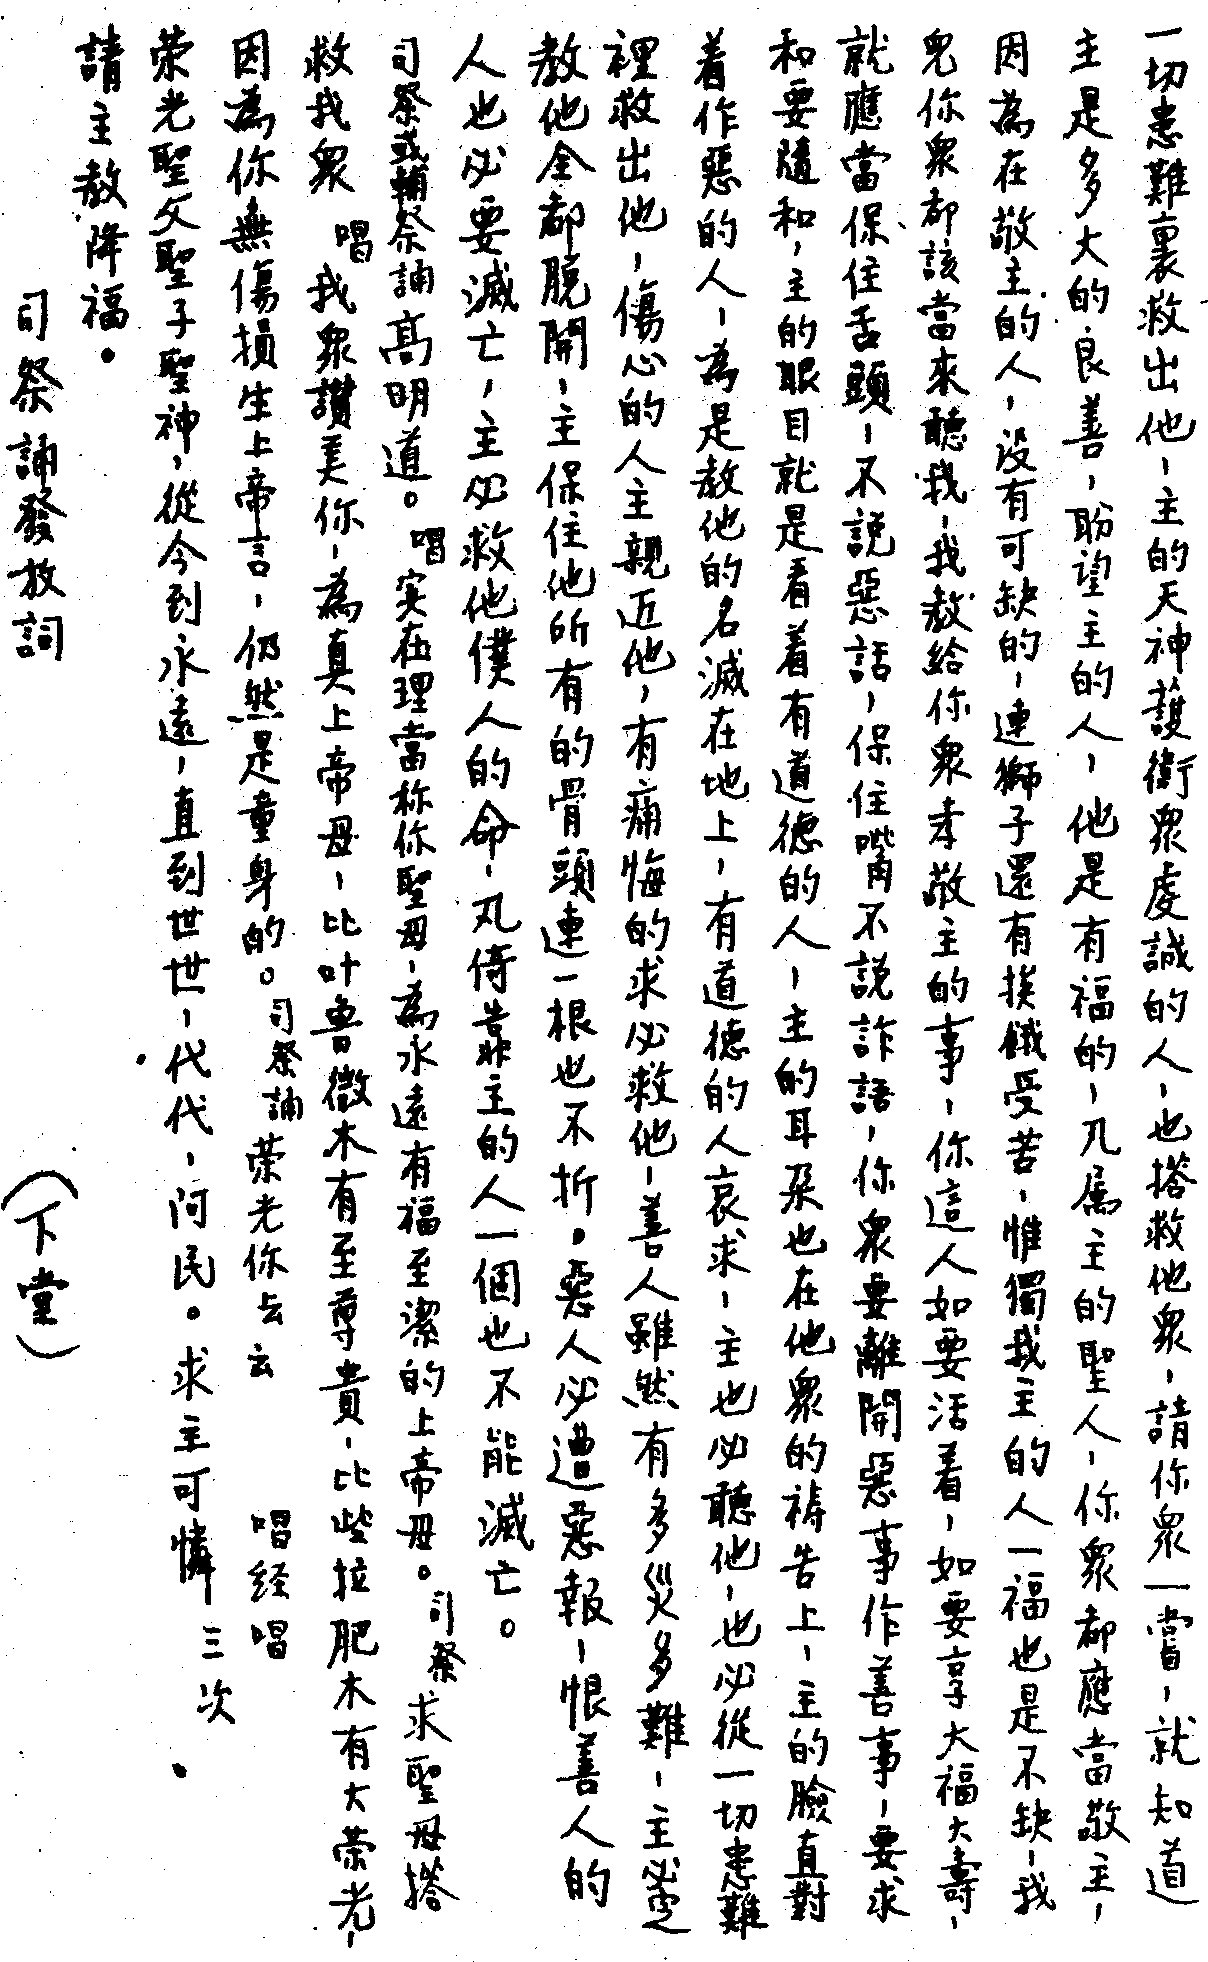 一切患難裏救出他，主的天神護衛眾虔誠的人，也搭救他眾，請你眾一嘗，就知道
主是多大的良善，盼望主的人，他是有福的，凡属主的聖人，你眾都應當敬主，
因為在敬主的人，没有可缺的，連獅子還有挨餓受苦，惟獨我主的人一福也是不缺，我
兒你眾都該當來聽我，我教給你眾孝敬主的事，你這人如要活着，如要享大福大壽，
就應當保住舌頭，不説惡話，保住嘴不説詐語，你眾要離開惡事作善事，要求
和要隨和，主的眼目就是看着有道德的人，主的耳朶也在他眾的祷告上，主的臉直對
着作惡的人，為是教他的名滅在地上，有道德的人哀求，主也必聽他，也必從一切患難
裡救出他，傷心的人主親近他，有痛悔的求必救他，善人雖然有多災多難，主必定
教他全都脱開，主保住他所有的骨頭連一根也不折。惡人必遭惡報，恨善人的
人也必要滅亡，主必救他僕人的命，凡倚靠主的人一個也不能滅亡。
司祭或輔祭誦高明道。 唱 实在理當称你聖母，為永遠有福至潔的上帝母。 司祭 求聖母搭
救我眾 唱 我眾讚美你，為真上帝母，比叶魯微木有至尊貴，比些拉肥木有大荣光，
因為你無傷損生上帝言，仍然是童身的。 司祭誦 荣光你云云 唱经唱
荣光聖父聖子聖神，從今到永遠，直到世世，代代，阿民。求主可憐 三次．
請主教降福。
司祭誦發放詞 （下堂）